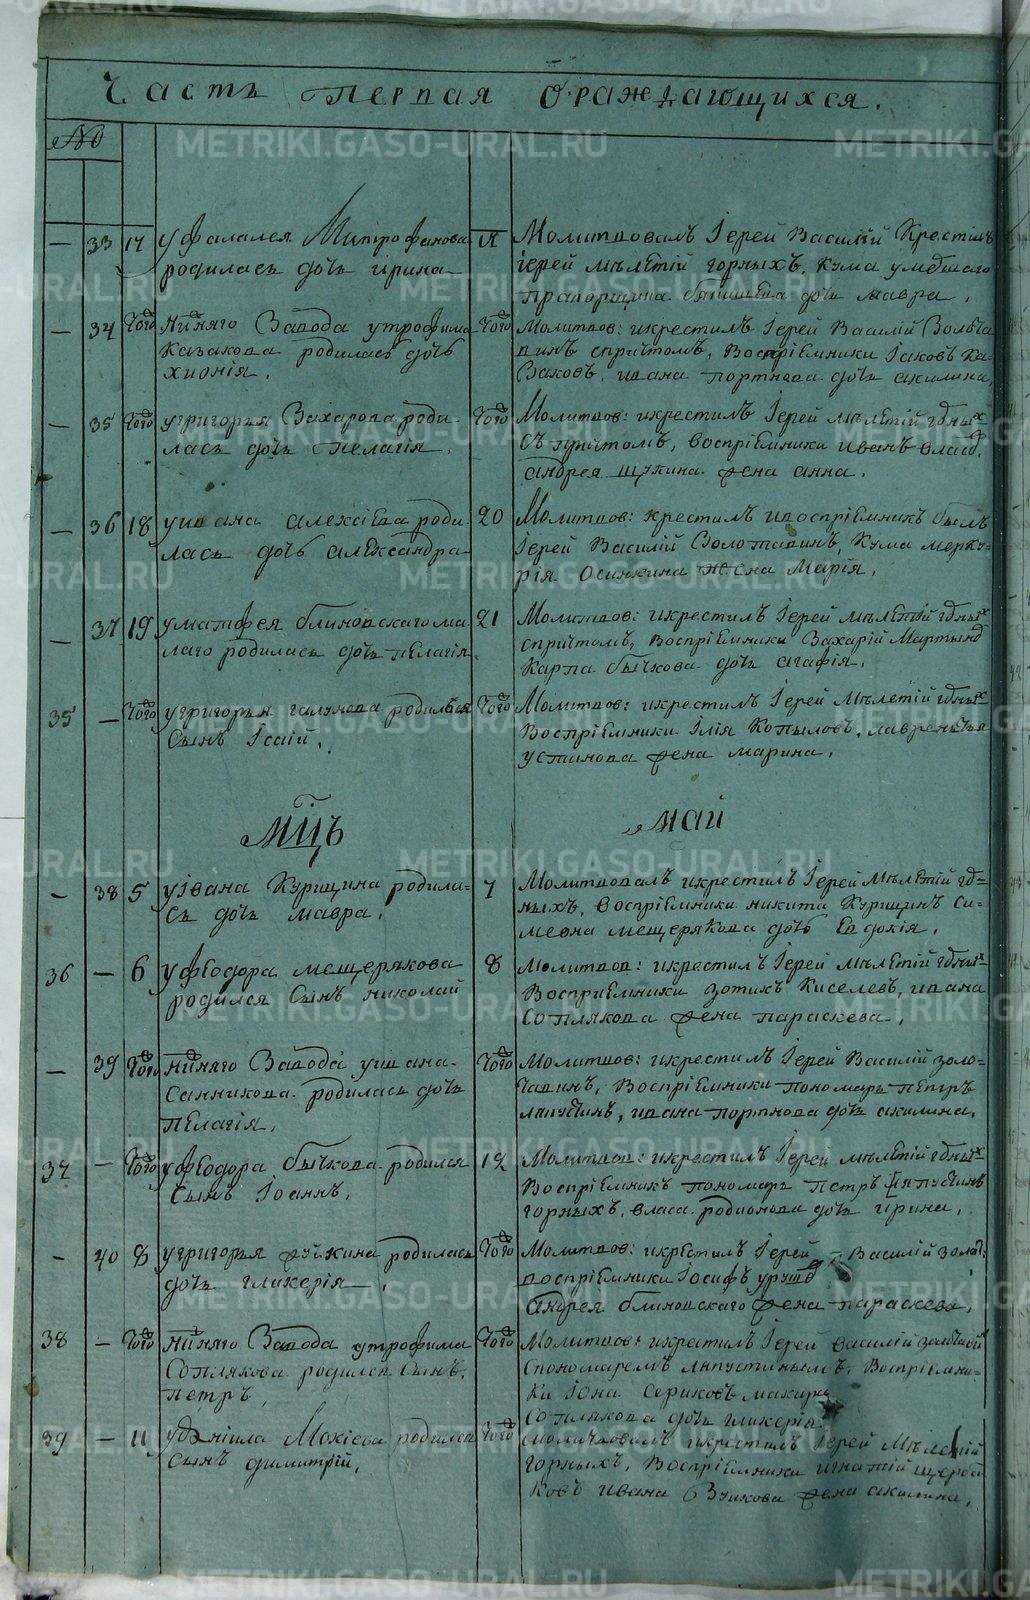 Часть первая о раждающихся.
№
— 33 17 у фалалея Митрофанова
родилась дочь ірина
Молитвовалъ Іерей Василій Крестилъ
іерей мѣлетій горныхъ, кума умершаго
прапорщика дочь мавра,
— 34 Того Нижняго Завода у трофима
Казакова родилась дочь
хионія,
Того Молитвов: и крестилъ Іерей Василій Золота
винъ с причтомъ, Воспріемники Іаковъ Ка-
заковъ, ивана портнова дочь акилина,
— 35 Того у григорья Захарова роди-
лась дочь пелагія,
Того Молитвов: и крестилъ Іерей мѣлетій гдныхъ
съ причтомъ, воспріемники иванъ
андрея щукина жена анна,
— 36 18 у ивана алексіева роди-
лась дочь александра
20 Молитвов: крестилъ и воспріемникъ былъ
Іерей Василій Золотавинъ, кума мерку-
рія Осинкина жена Марія,
— 37 19 у матфея блиновскаго ма-
лаго родилась дочь пелагія
21 Молитвов: и крестилъ Іерей мѣлетій гдныхъ
с причтомъ, воспріемники Захарій Мартын
Карпа бычкова дочь агафія,
35 — Того у григорья галунова родился
Сынъ Ісаій,
Того Молитвов: и крестилъ Іерей Мѣлетій гдныхъ
Воспріемники Ілія Копыловъ, лаврентья
устинова жена марина,
Мцъ май
— 38 5 у івана Куршина родила-
сь дочь мавра,
7 Молитвовалъ и крестилъ Іерей мѣлетій гд-
ныхъ, воспріемники никита Куршинъ си-
меона мещерякова дочь Евдокія,
36 — 6 у феодора мещерякова
родился Сынъ николай
8 Молитвов: и крестилъ Іерей мѣлетій гдныхъ
Воспріемники зотикъ Киселевъ, ивана
Соплякова жена параскева,
— 39 Того нижняго Завода у ивана
Санникова родилась дочь
пелагія,
Того Молитвов: и крестилъ Іерей Василій золо-
тавинъ, воспріемники пономарь петръ
лапустинъ, ивана портнова дочь акилина,
37 — Того у феодора бычкова родился
Сынъ Іоаннъ,
12 Молитвов: и крестилъ Іерей мѣлетій гдныхъ
Воспріемникъ пономарь петръ лапустинъ
горныхъ, власа родионова дочь ірина,
— 40 8 у григорья родилась
дочь гликерія,
Того Молитвов: и крестилъ Іерей Василій золот:
воспріемники Іосифъ
андрея блиновскаго жена параскева,
38 — Того нижняго Завода у трофима
Соплякова родился Сынъ,
петръ,
Того Молитвов: и крестилъ Іерей василій
с пономаремъ лапустинымъ, Воспріемни-
ки Іона Сериковъ макара
Соплякова дочь гликерія
39 — 11 у даніила Мокіева родился
Сынъ димитрій,
Того молитвовалъ и крестилъ Іерей Мѣлетій
горныхъ, воспріемники игнатій щерба
ковъ ивана Зуикова жена акилина,